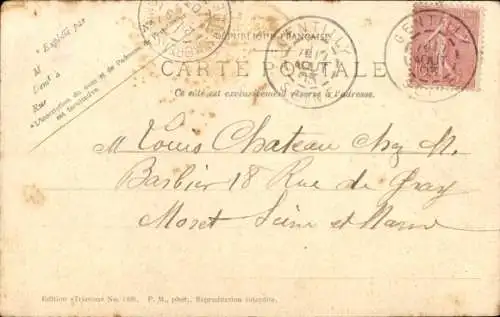 "Expédié par
M
Demt à
Rue
"L'inscription du nom et de l'adresse de
est facultative.
RÉPUBLIQUE FRANÇAISE
CARTE POSTALE
Ce côté est exclusivement réservé à l'adresse.
GENTILLY
AOUT
GENTILLY
AOUT
M Louis Chateau chez M.
Barbier 18 Rue de Gray
Moret Seine et Marne
Edition «Trianon» No. P. M., phot. Reproduction interdite.